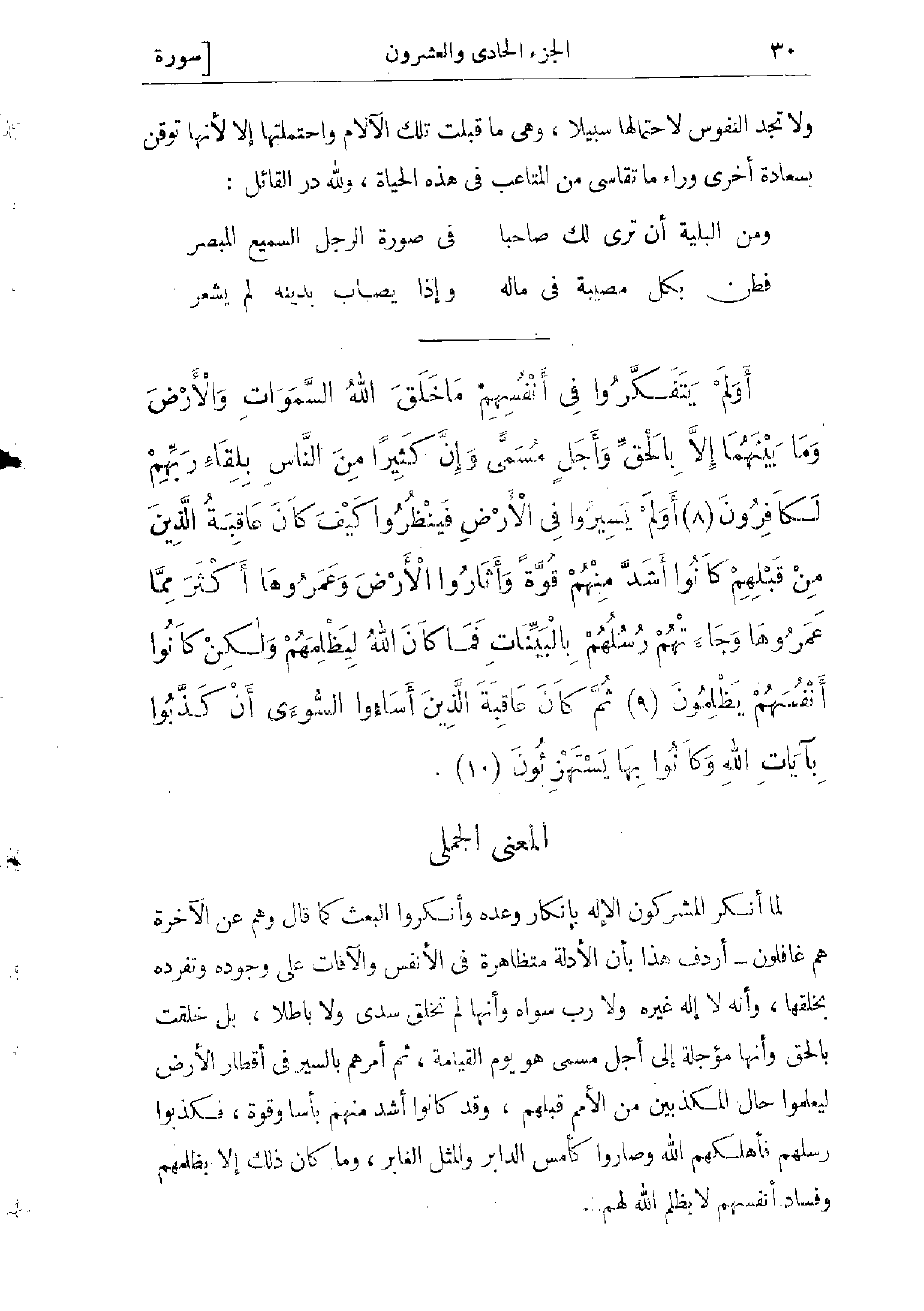 ٣٠ الجزء الحادى والعشرون [سورة
ولا تجد النفوس لاحتمالها سبيلا ، وهى ما قبلت تلك الآلام واحتملتها إلا لأنها توقن
بسعادة أخرى وراء ما تقاسى من المتاعب فى هذه الحياة ، ولله در القائل :
ومن البلية أن ترى لك صاحبا فى صورة الرجل السميع المبصر
فطن بكل مصيبة فى ماله وإذا يصاب بدينه لم يشعر
أَوَلَمْ يَتَفَكَّرُوا فِى أَنْفُسِهِمْ مَاخَلَقَ اللهُ السَّمَوَاتِ وَالْأَرْضَ
وَمَا بَيْنَهُمَا إِلاَّ بِالْحَقِّ وَأَجَلٍ مُسَمًّى وَإِنَّ كَثِيرًا مِنَ النَّاسِ بِلِقَاءِ رَبِّهِمْ
لَكَافِرُونَ (٨) أَوَلَمْ يَسِيرُوا فِى الْأَرْضِ فَيَنْظُرُوا كَيْفَ كَانَ عَاقِبَةُ الَّذِينَ
مِنْ قَبْلِهِمْ كَانُوا أَشَدَّ مِنْهُمْ قُوَّةً وَأَثَارُوا الْأَرْضَ وَعَمَرُوهَا أَكْثَرَ مِمَّا
عَمَرُوهَا وَجَاءَتْهُمْ رُسُلُهُمْ بِالْبَيِّنَاتِ فَمَا كَانَ اللهُ لِيَظْلِمَهُمْ وَلَٰكِنْ كَانُوا
أَنْفُسَهُمْ يَظْلِمُونَ (٩) ثُمَّ كَانَ عَاقِبَةَ الَّذِينَ أَسَاءُوا السُّوءَى أَنْ كَذَّبُوا
بِآيَاتِ اللهِ وَكَانُوا بِهَا يَسْتَهْزِئُونَ (١٠) .
المعنى الجملى
لما أنكر المشركون الإله بإنكار وعده وأنكروا البعث كما قال وهم عن الآخرة
هم غافلون – أردف هذا بأن الأدلة متظاهرة فى الأنفس والآفات على وجوده وتفرده
بخلقها ، وأنه لا إله غيره ولا رب سواه وأنها لم تخلق سدى ولا باطلا ، بل خلقت
بالحق وأنها مؤجلة إلى أجل مسمى هو يوم القيامة ، ثم أمرهم بالسير فى أقطار الأرض
ليعلموا حال المكذبين من الأمم قبلهم ، وقد كانوا أشد منهم بأسا وقوة ، فكذبوا
رسلهم فأهلكهم الله وصاروا كأمس الدابر والمثل الغابر ، وما كان ذلك إلا بظلمهم
وفساد أنفسهم لا بظلم الله لهم .